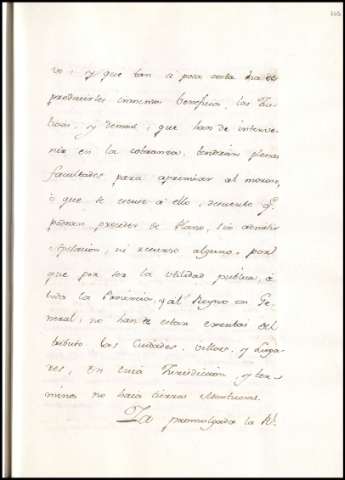 vo; y que tan á poca costa ha de
producirles inmenso beneficio, las Jus-
ticias, y demas, que han de interve-
nir en la cobranza, tendrán plenas
facultades para apremiar al moroso,
ò que se escuse á ello, 
podran proceder de Plano, sin admitir
Apelacion, ni recurso alguno, por
que por ser la utilidad publica, á
toda la Provincia, y al Reyno en Ge-
neral; no han de estar exentas del
tributo las Ciudades, villas, y Luga-
res, en cuia Jurisdiccion, y ter-
minos no haia tierras
La promulgada la Rl.